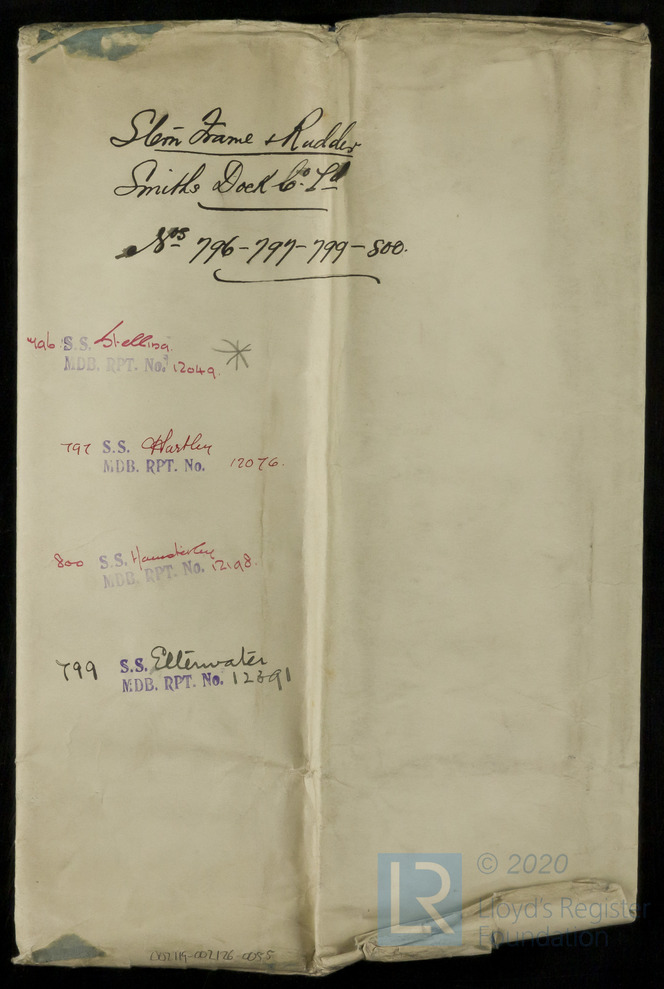 Stern Frame & Rudder
Smiths Dock Co. Ld
Nos 796-797-799-800.
796 S.S. Stellina
MDB. RPT. No. 12049.
797 S.S. Hartley
MDB. RPT. No. 12076.
800 S.S. Hamsterley
MDB. RPT. No. 12198.
799 S.S. Elterwater
MDB. RPT. No. 12391
002119-002126-0055
LR
© 2020
Lloyd's Register
Foundation